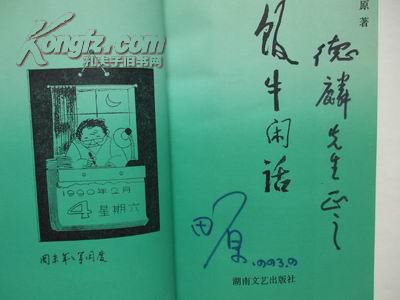 Kongfz.com
孔夫子旧书网
1990年2月
4 星期六
原 著
德麟先生正之
饭牛闲话
田原 1993.9
湖南文艺出版社